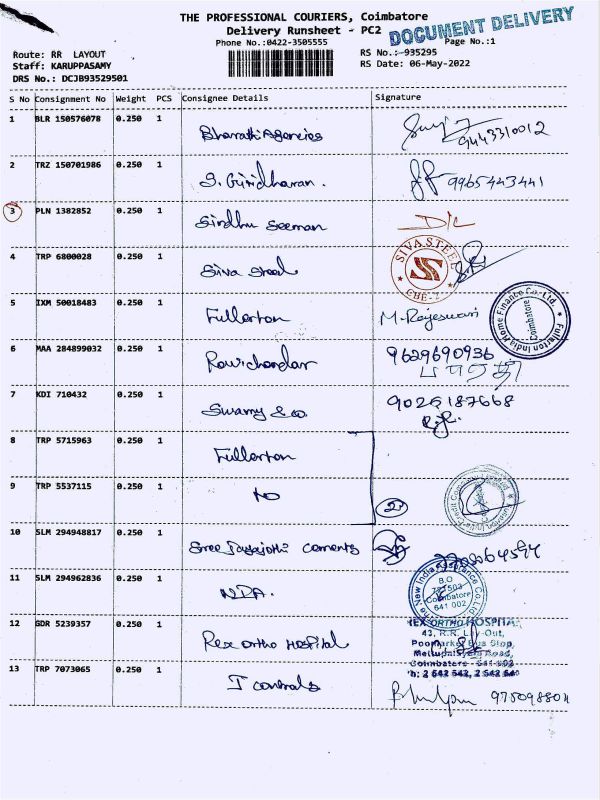 THE PROFESSIONAL COURIERS, Coimbatore
Delivery Runsheet - PC2
DOCUMENT DELIVERY
Phone No.:0422-3505555
Page No.:1
Route: RR LAYOUT
RS No.:-935295
Staff: KARUPPASAMY
RS Date: 06-May-2022
DRS No.: DCJB93529501
S No Consignment No Weight PCS Consignee Details Signature
1 BLR 150576078 0.250 1 Bharathi Agencies 9443310012
2 TRZ 150701986 0.250 1 S. Giridharan. 9965443441
3 PLN 1382852 0.250 1 Sindhu Seeman D/L
4 TRP 6800028 0.250 1 Siva Steel
SIVA STEEL
CBE-2
5 IXM 50018483 0.250 1 Fullerton M. Rajeswari
Fullerton India Home Finance Co. Ltd.
Coimbatore
6 MAA 284899032 0.250 1 Ravichandar 9629690936
7 KDI 710432 0.250 1 Swamy & co. 9026187668
8 TRP 5715963 0.250 1 Fullerton
9 TRP 5537115 0.250 1 NO
Fullerton India Credit Company Limited
10 SLM 294948817 0.250 1 Sree Jayajothi cements
11 SLM 294962836 0.250 1 NDA.
The New India Assurance Co. Ltd.
B.O
Coimbatore
641 002
12 GDR 5239357 0.250 1 Rex Ortho Hospital
REX ORTHO HOSPITAL
43, R.R. Lay-Out,
Poomarket Bus Stop,
Mettupalayam Road,
Coimbatore - 641 002
Ph: 2 542 542, 2 542 540
13 TRP 7073065 0.250 1 I controls 9750988011